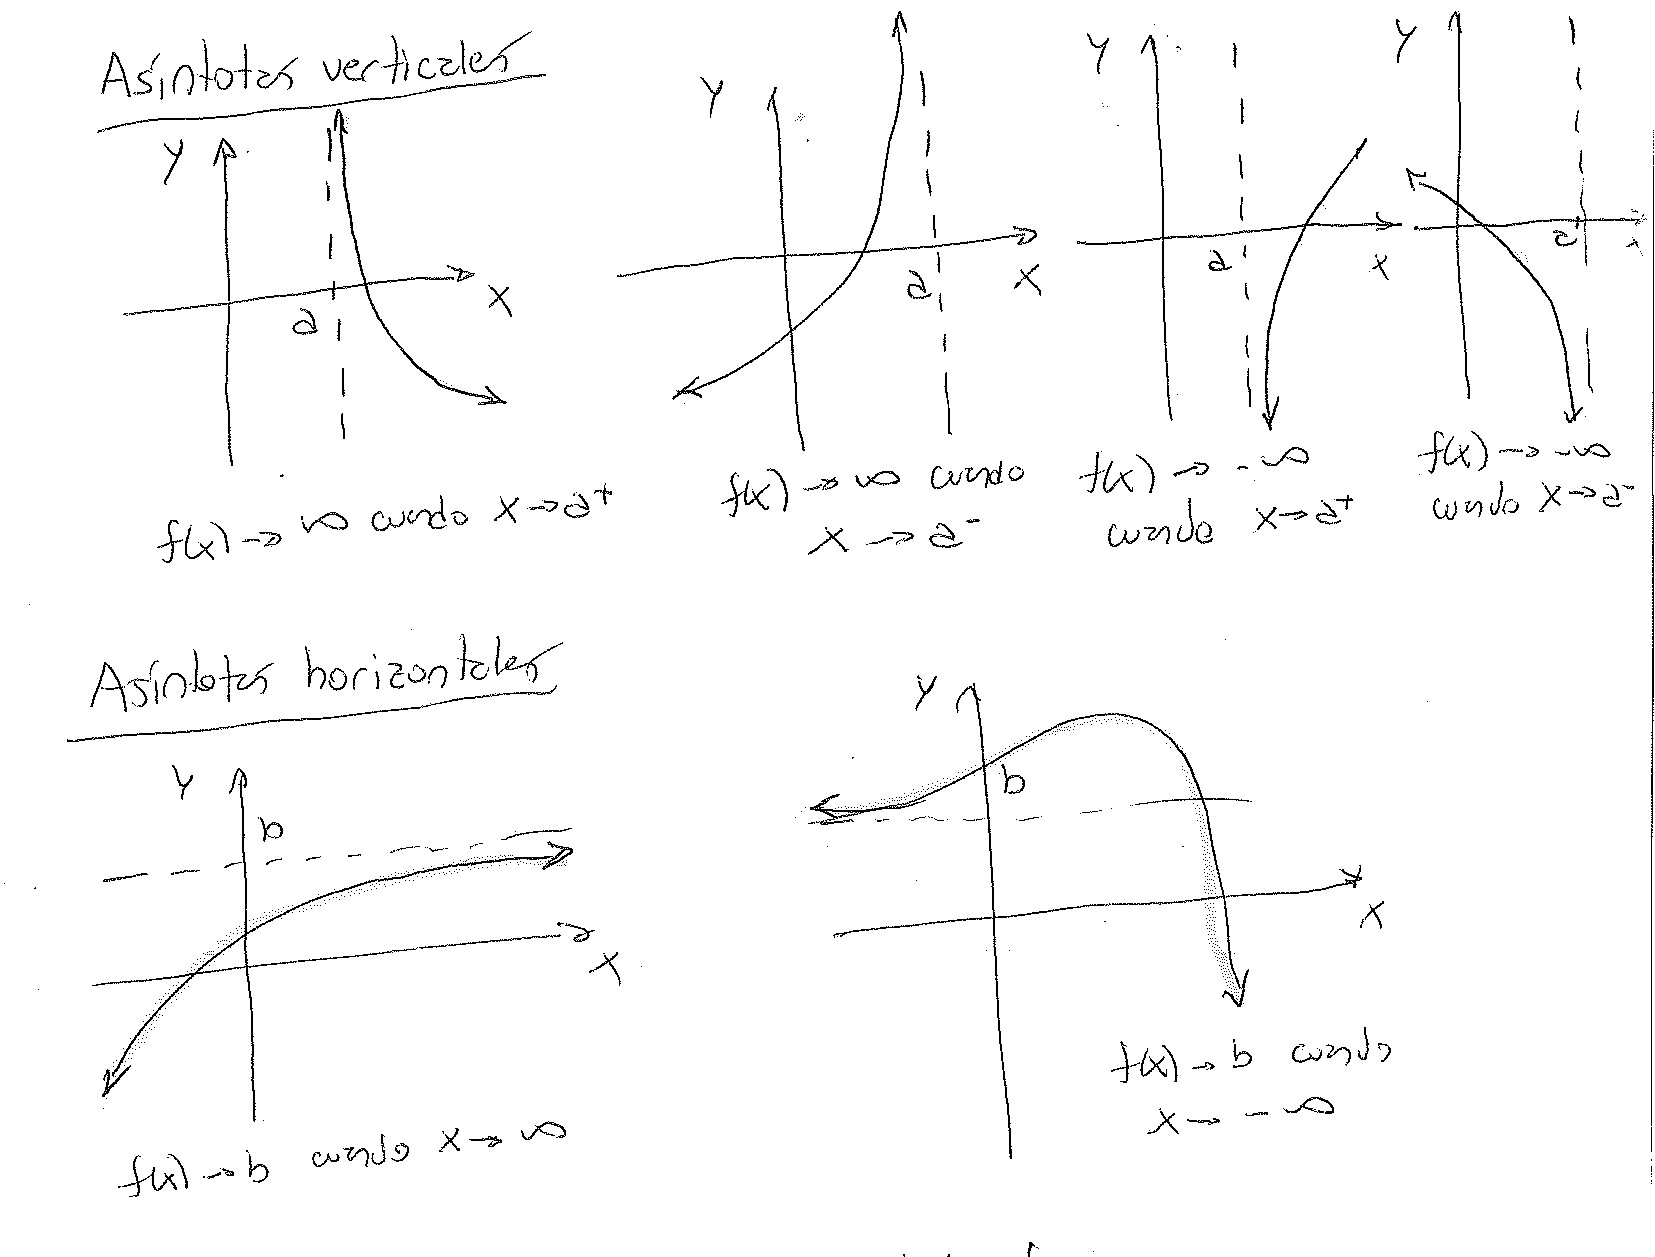 Asíntotas verticales
Y
X
a
f(x) → ∞ cuando x → a⁺
Y
X
a
f(x) → ∞ cuando
x → a⁻
Y
X
a
f(x) → -∞
cuando x → a⁺
Y
x
a
f(x) → -∞
cuando x → a⁻
Asíntotas horizontales
Y
b
X
f(x) → b cuando x → ∞
Y
b
X
f(x) → b cuando
x → -∞